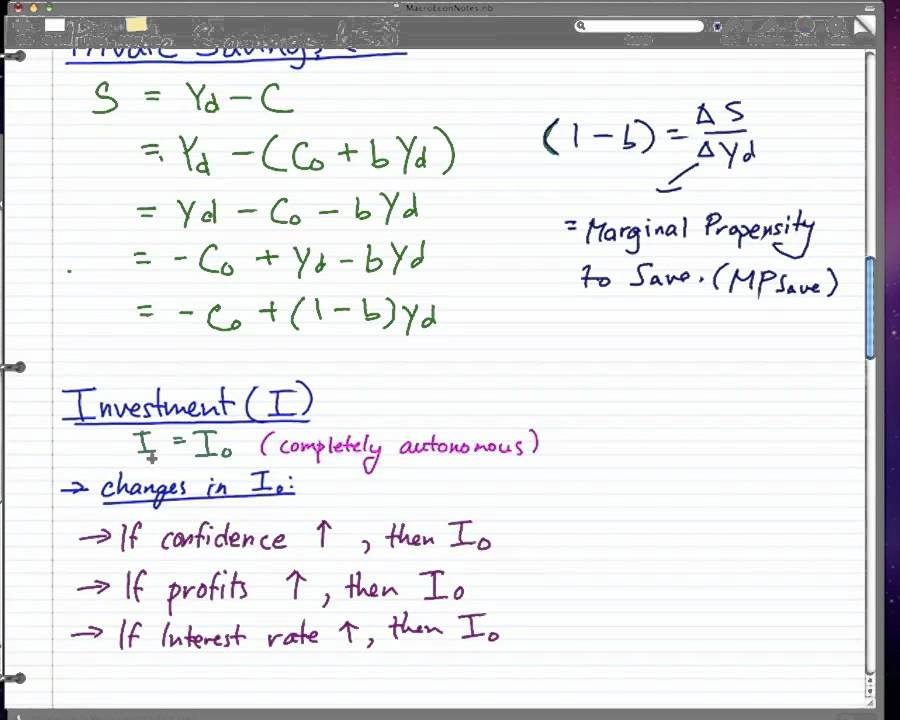 MacroEconNotes.nb
Private Savings
S = Yd − C
= Yd − (C₀ + bYd)
= Yd − C₀ − bYd
= −C₀ + Yd − bYd
= −C₀ + (1 − b)Yd
(1 − b) = ΔS / ΔYd
= Marginal Propensity
to Save. (MPSave)
Investment (I)
I = I₀ (completely autonomous)
→ changes in I₀:
→ If confidence ↑, then I₀
→ If profits ↑, then I₀
→ If Interest rate ↑, then I₀